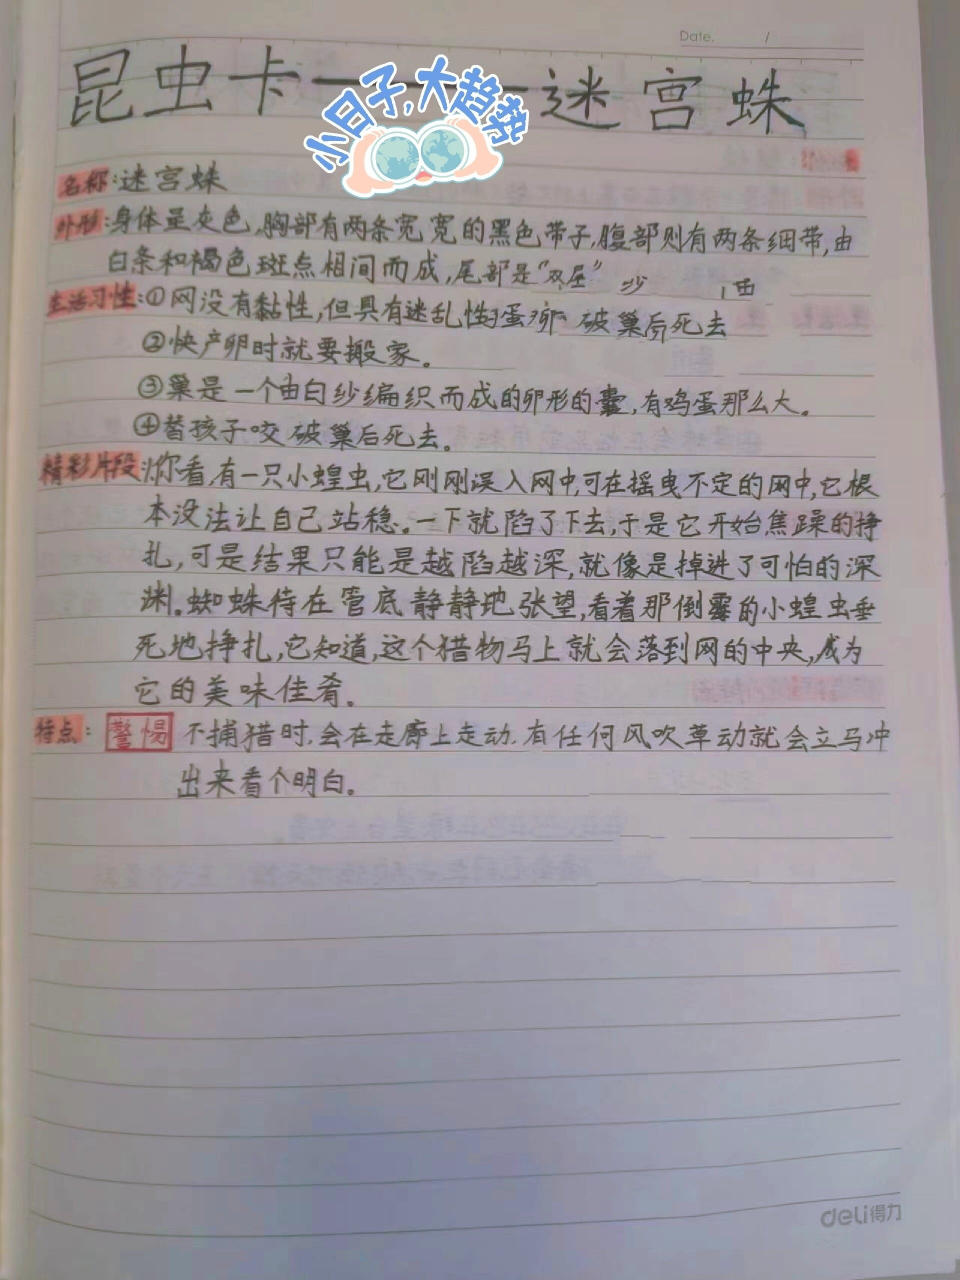 Date. /
昆虫卡——迷宫蛛
小日子,大趋势
名称:迷宫蛛
外形:身体呈灰色,胸部有两条宽宽的黑色带子,腹部则有两条细带,由
白条和褐色斑点相间而成,尾部是“双尾”
生活习性:①网没有黏性,但具有迷乱性 破巢后死去
②快产卵时就要搬家。
③巢是一个由白纱编织而成的卵形的囊,有鸡蛋那么大。
④替孩子咬破巢后死去。
精彩片段:你看,有一只小蝗虫,它刚刚误入网中,可在摇曳不定的网中,它根
本没法让自己站稳。一下就陷了下去,于是它开始焦躁的挣
扎,可是结果只能是越陷越深,就像是掉进了可怕的深
渊。蜘蛛待在管底静静地张望,看着那倒霉的小蝗虫垂
死地挣扎,它知道,这个猎物马上就会落到网的中央,成为
它的美味佳肴。
特点:警惕 不捕猎时,会在走廊上走动,有任何风吹草动就会立马冲
出来看个明白。
deli得力